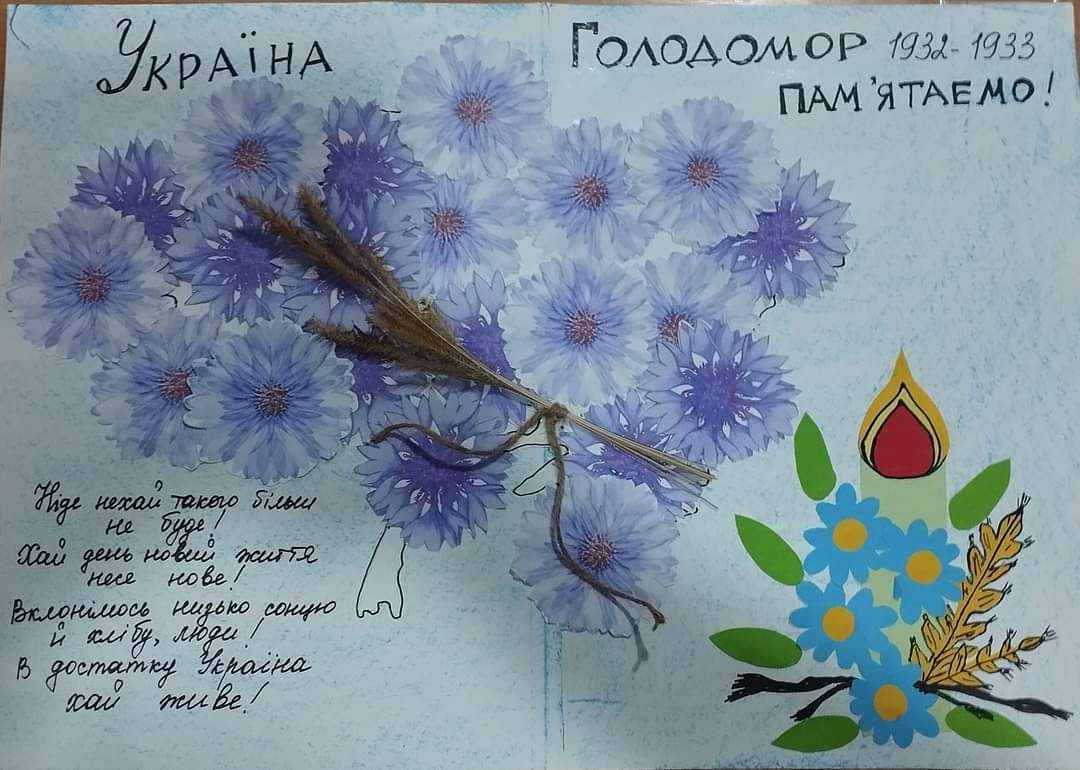 Україна
Голодомор 1932-1933
Пам'ятаємо!
Ніде нехай такого більш
не буде!
Хай день новий життя
несе нове!
Вклонімось низько сонцю
й хлібу, люди!
В достатку Україна
хай живе!